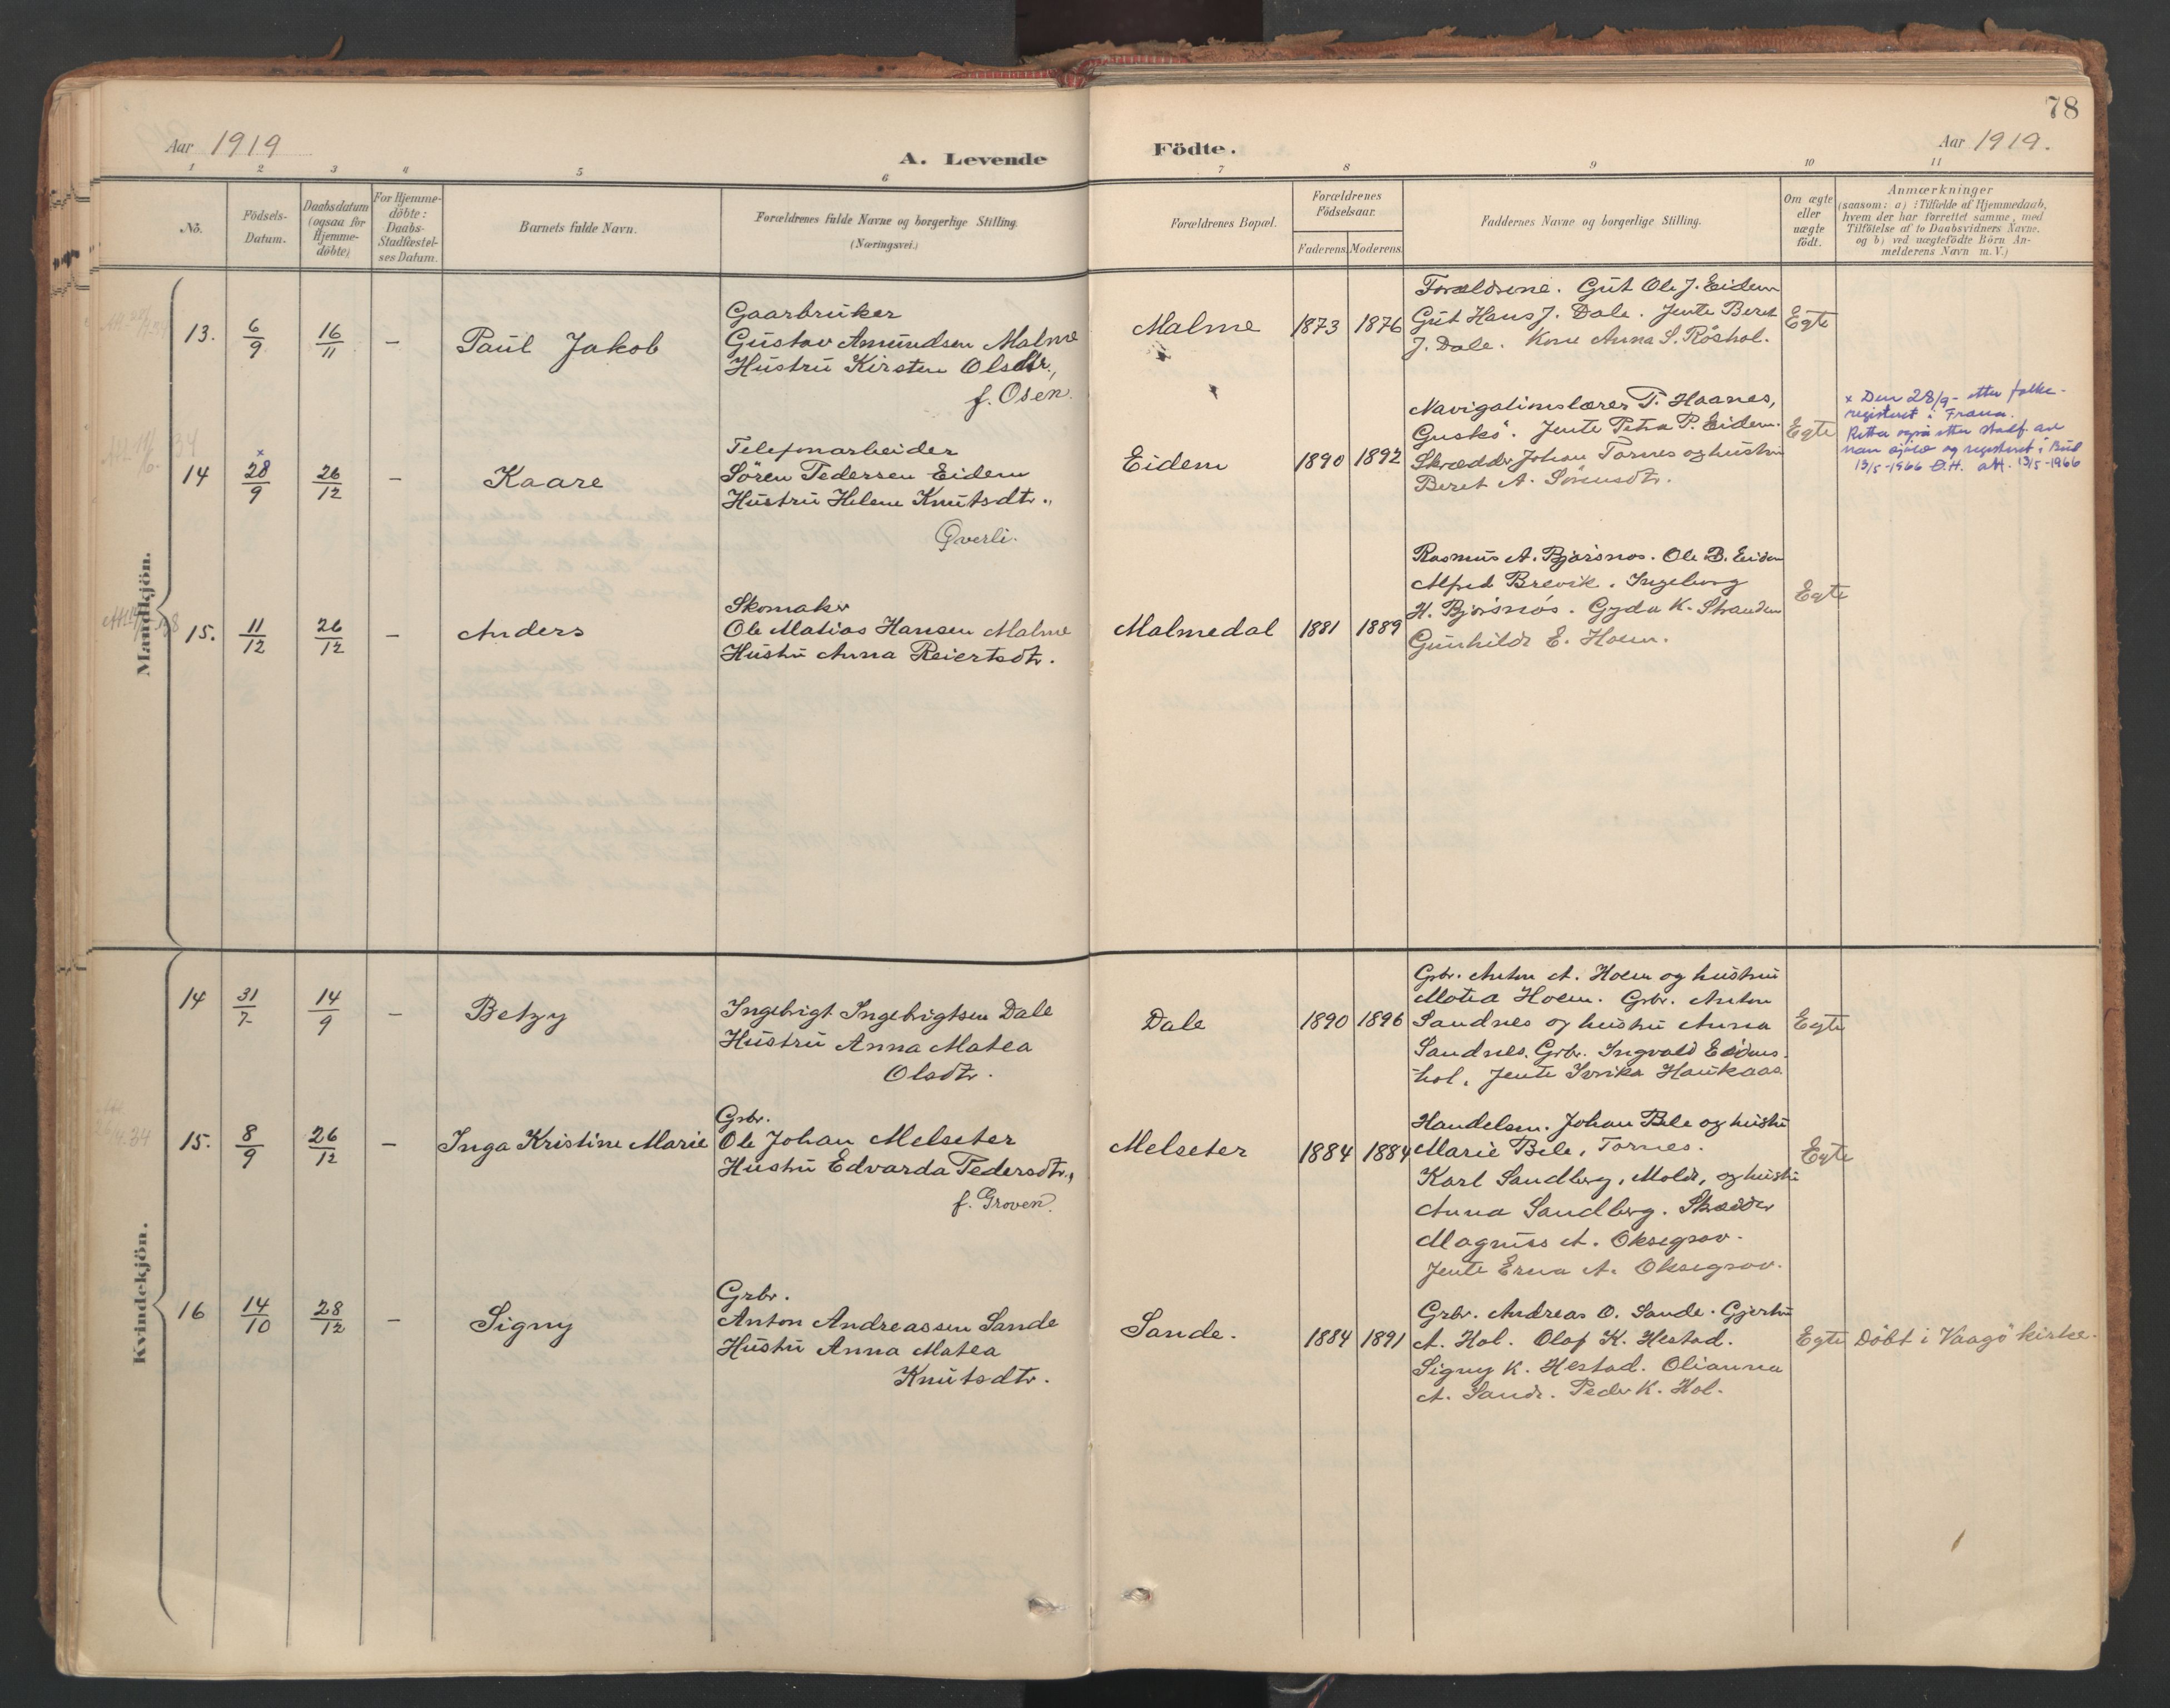 78
Aar 1919
A. Levende
Födte.
Aar 1919.
1 2 3 4 5 6 7 8 9 10 11
No.
Födsels-
Datum.
Daabsdatum
(ogsaa for
Hjemme-
döbte)
For Hjemme-
döbte:
Daabs-
Stadfæstel-
ses Datum.
Barnets fulde Navn.
Forældrenes fulde Navne og borgerlige Stilling.
(Næringsvei.)
Forældrenes Bopæl.
Forældrenes
Födselsaar.
Faderens. Moderens.
Faddernes Navne og borgerlige Stilling.
Om ægte
eller
uægte
födt.
Anmærkninger
(saasom: a) i Tilfælde af Hjemmedaab,
hvem der har forrettet samme, med
Tilföielse af to Daabsvidners Navne.
og b) ved uægtefödte Börn An-
melderens Navn m. V.)
Mandkjön.
13. 6/9 16/11 — Paul Jakob
Gaarbruker
Gustav Amundsen Malme
Hustru Kirsten Olsdtr.,
f. Osen.
Malme 1873 1876
Forældrene. Gut Ole J. Eidem
Gut Hans J. Dale. Jente Beret
J. Dale. Kone Anna S. Röshol.
Egte
14 x 28/9 26/12 — Kaare
Telefonarbeider
Sören Pedersen Eidem
Hustru Helene Knutsdtr.,
Qverli.
Eidem 1890 1892
Navigationslærer T. Haanes,
Jente Petra P. Eidem.
Skrædder Johan Tornes og hustru
Beret A.
Egte
x Den 28/9 - etter folke-
registeret i Fræna.
13/5-1966 O.H. 13/5-1966
15. 11/12 26/12 — Anders
Skomaker
Ole Matias Hansen Malme
Hustru Anna Reiertsdtr.
Malmedal 1881 1889
Rasmus A. Bjørsnos. Ole B. Eidem
Alfred Brevik. Ingeborg
H. Bjørsnös. Gyda K. Stranden
Gunhild E. Hoem.
Egte
Kvindekjön.
14 31/7 14/9 — Betzy
Ingebrigt Ingebrigtsen Dale
Hustru Anna Matea
Olsdtr.
Dale 1890 1896
Grbr. Anton A. Hoem og hustru
Matea Hoem. Grbr. Anton
Sandnes og hustru Anna
Sandnes. Grbr. Ingvald Eidems-
hol. Jente Haukaas.
Egte
15. 8/9 26/12 — Inga Kristine Marie
Grbr.
Ole Johan Melseter
Hustru Edvarda Pedersdtr.,
f. Groven.
Melseter 1884 1884
Handelsm. Johan Bele og hustru
Marie Bele, Tornes.
Karl Sandberg, Molde, og hustru
Anna Sandberg. Skrædder
Magnus A. Oksegrov.
Jente Erna A. Oksegrov.
Egte
16 14/10 28/12 — Signy
Grbr.
Anton Andreassen Sande
Hustru Anna Matea
Knutsdtr.
Sande. 1884 1891
Grbr. Andreas O. Sande. Gjertru
A. Hol. Olaf K. Hestad.
Signy K. Hestad. Olianna
A. Sande. Peder K. Hol.
Egte Döbt i Vaagö kirke.